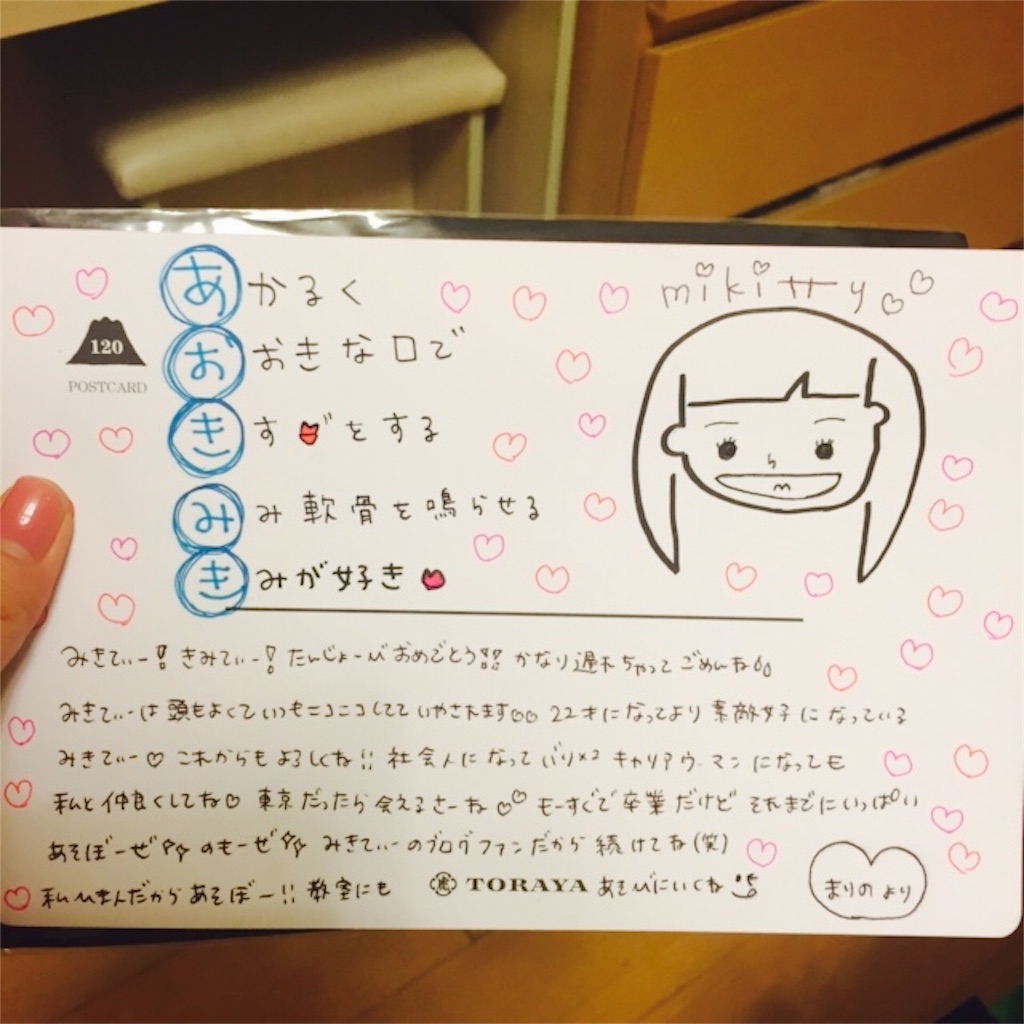 あかるく
mikitty
120
おおきな口で
POSTCARD
きすをする
みみ軟骨を鳴らせる
きみが好き
みきてぃー!きみてぃー!たんじょーびおめでとう!! かなり遅れちゃってごめんね
みきてぃーは頭もよくていつもニコニコしてていやされます♡♡ 22才になってより素敵女子になっている
みきてぃー♡ これからもよろしくね!! 社会人になってバリ×2 キャリアウーマンになっても
私と仲良くしてね♡ 東京だったら会えるさーね♡♡ もーすぐで卒業だけど それまでにいっぱい
あそぼーぜ のもーぜ みきてぃーのブログファンだから続けてね(笑)
私ひまんだからあそぼー!! 教室にも TORAYA あそびにいくね
まりのより